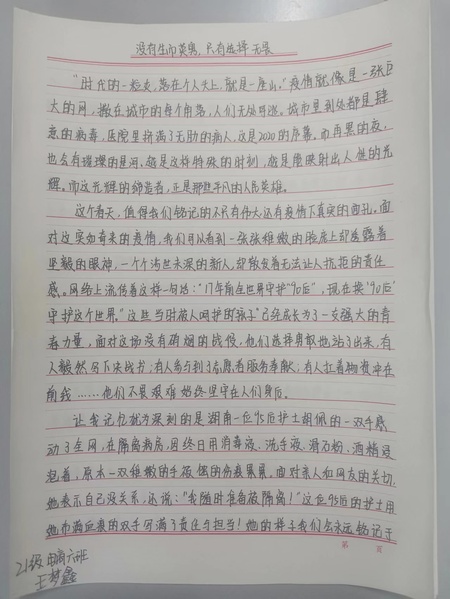 没有生而英勇，只有选择无畏
“时代的一粒灰，落在个人头上，就是一座山。”疫情就像是一张巨
大的网，撒在城市的每个角落，人们无处可逃。城市里到处都是肆
意的病毒，医院里挤满了无助的病人，这是2020的序幕。而再黑的夜，
也会有璀璨的星河，越是这样特殊的时刻，越是麽映射出人性的光
辉。而这光辉的缔造者，正是那些平凡的人民英雄。
这个春天，值得我们铭记的不只有伟大，还有疫情下真实的面孔。面
对这突如奇来的疫情，我们可以看到一张张稚嫩的脸庞上却透露着
坚毅的眼神，一个个涉世未深的新人，却散发着无法让人抗拒的责任
感。网络上流传着这样一句话：“17年前全世界守护‘90后’，现在换‘90后’
守护这个世界。”这些当时被人呵护的“孩子”已经成长为了一支强大的青
春力量，面对这场没有硝烟的战役，他们选择勇敢地站了出来，有
人毅然写下决战书；有人参与到了志愿者服务奉献；有人扛着物资冲在
前线……他们不畏艰难始终坚守在人们身后。
让我记忆就为深刻的是湖南一位95后护士胡佩的一双手感
动了全网，在隔离病房，因终日用消毒液、洗手液、滑石粉、酒精浸
泡着，原本一双稚嫩的手被蚀的伤痕累累。面对亲人和网友的关切，
她表示自己没关系，还说：“我随时准备被隔离！”这位95后的护士用
她布满血痕的双手写满了责任与担当！她的样子我们会永远铭记于
第 页
21级 电商六班
王梦鑫